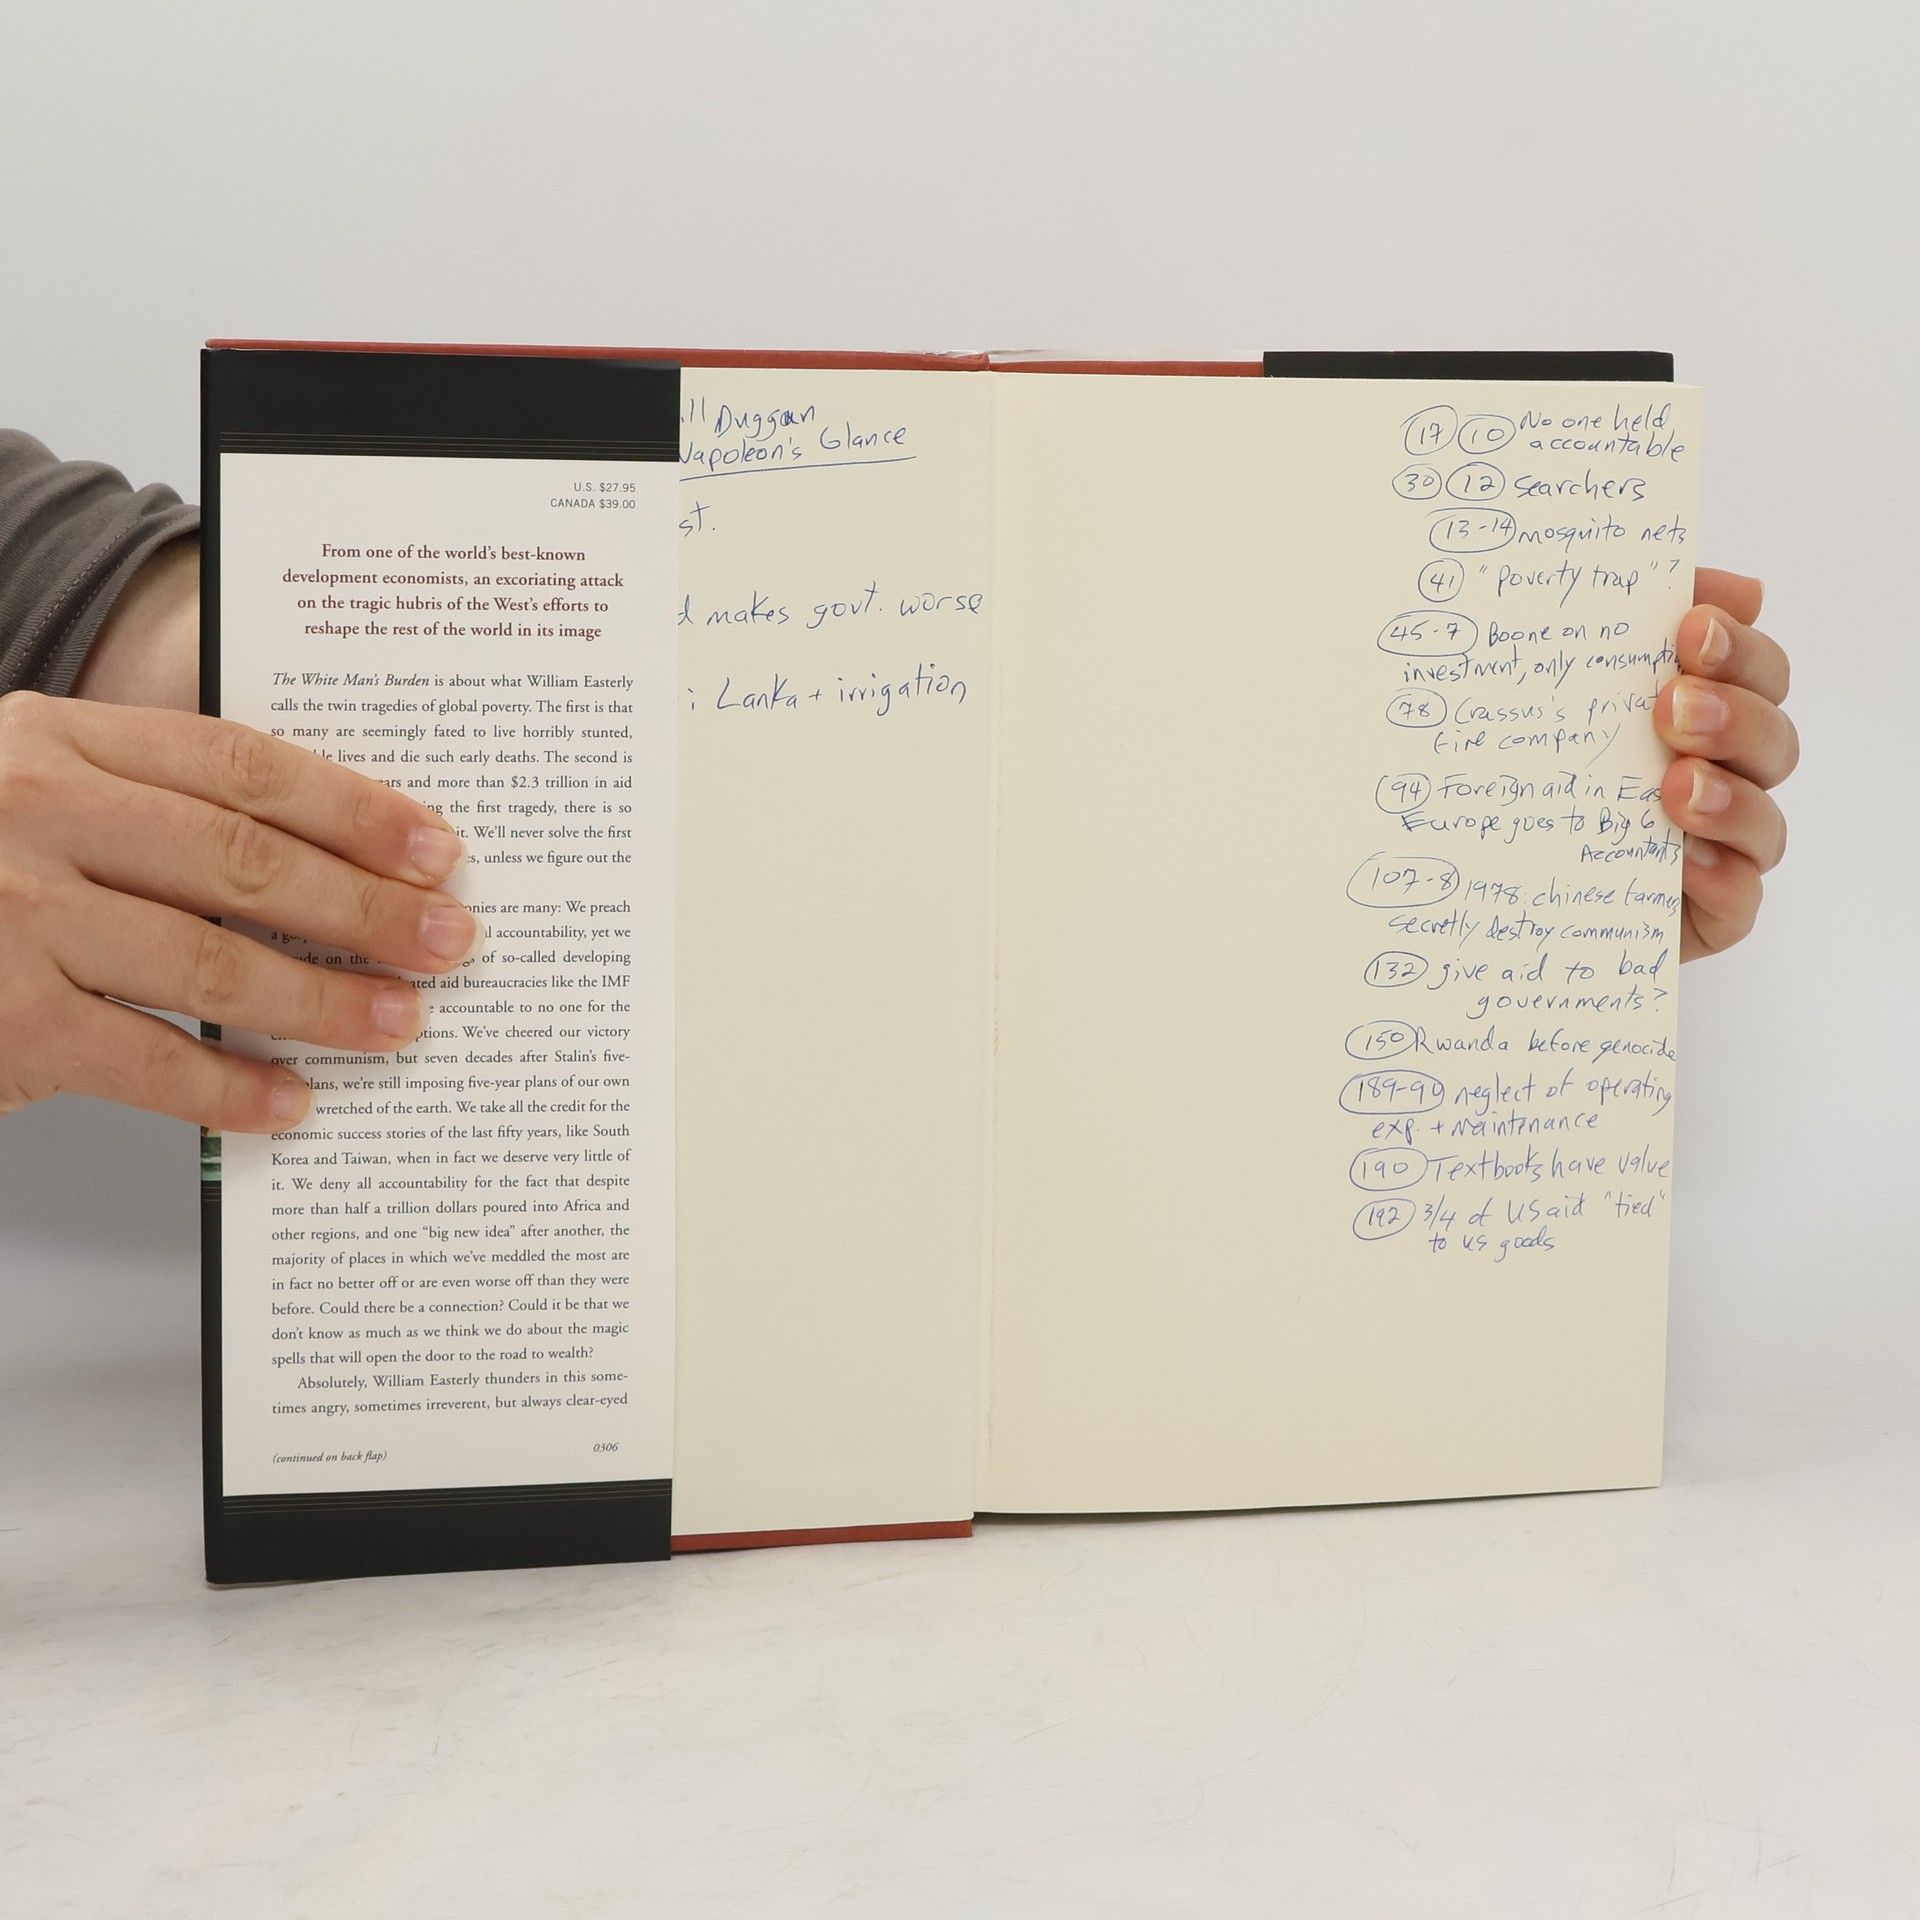 U.S. $27.95
CANADA $39.00
From one of the world's best-known
development economists, an excoriating attack
on the tragic hubris of the West's efforts to
reshape the rest of the world in its image
The White Man's Burden is about what William Easterly
calls the twin tragedies of global poverty. The first is that
so many are seemingly fated to live horribly stunted,
lives and die such early deaths. The second is
and more than $2.3 trillion in aid
the first tragedy, there is so
it. We'll never solve the first
unless we figure out the
are many: We preach
accountability, yet we
on the of so-called developing
aid bureaucracies like the IMF
accountable to no one for the
We've cheered our victory
over communism, but seven decades after Stalin's five-
we're still imposing five-year plans of our own
wretched of the earth. We take all the credit for the
economic success stories of the last fifty years, like South
Korea and Taiwan, when in fact we deserve very little of
it. We deny all accountability for the fact that despite
more than half a trillion dollars poured into Africa and
other regions, and one “big new idea” after another, the
majority of places in which we've meddled the most are
in fact no better off or are even worse off than they were
before. Could there be a connection? Could it be that we
don't know as much as we think we do about the magic
spells that will open the door to the road to wealth?
Absolutely, William Easterly thunders in this some-
times angry, sometimes irreverent, but always clear-eyed
(continued on back flap)
0306
ll Duggan
Napoleon's Glance
st.
makes govt. worse
Lanka + irrigation
17 10 No one held
accountable
30 12 searchers
13-14 mosquito nets
41 "poverty trap"?
45-7 Boone on no
investment, only consumpti
78 Crassus's privat
fire company
94 Foreign aid in Eas
Europe goes to Big 6
Accountants
107-8 1978: chinese farmers
secretly destroy communism
132 give aid to bad
governments?
150 Rwanda before genocide
189-90 neglect of operating
exp. + maintenance
190 Textbooks have value
192 3/4 of US aid "tied"
to US goods